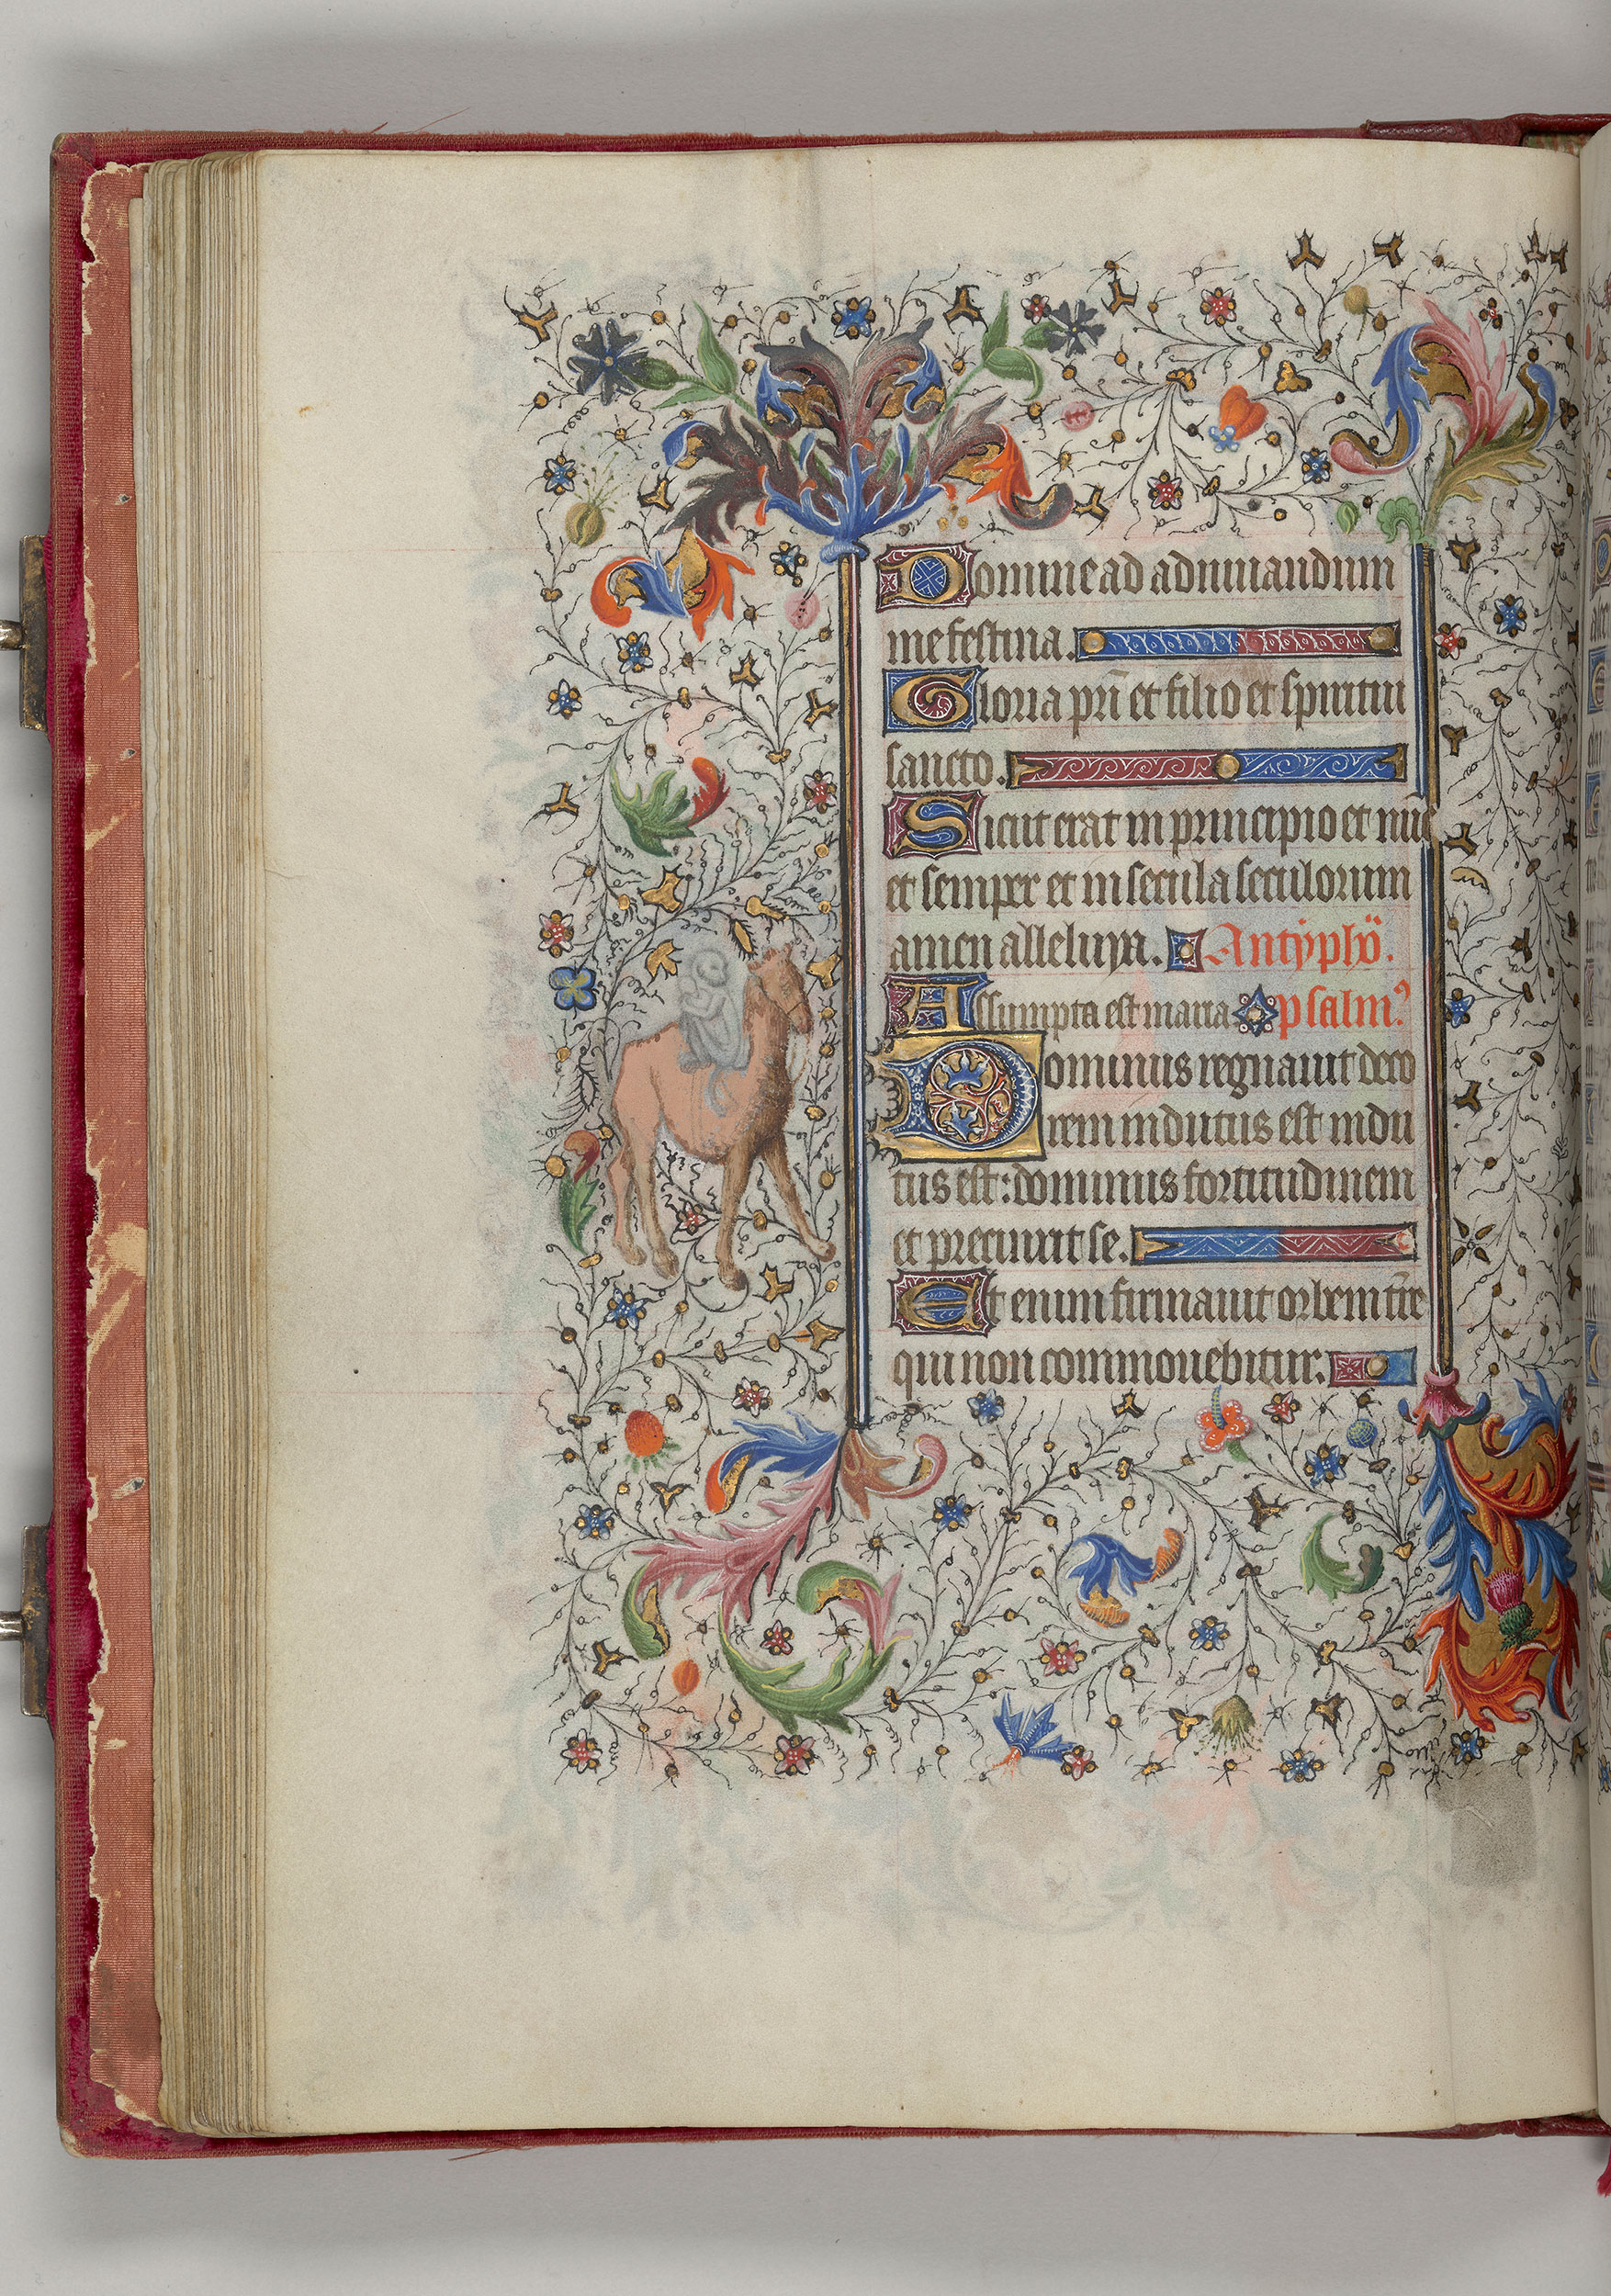 Domine ad adiuuandum
me festina.
Gloria pr̄i et filio et spiritui
sancto.
Sicut erat in principio et nūc
et semper et in secula seculorum
amen alleluya. Antyphō.
Assumpta est maria psalmꝰ
Dominus regnauit deco
rem indutus est indu
tus est: dominus fortitudinem
et precinxit se.
Et enim firmauit orbem t̄re
qui non commouebitur.